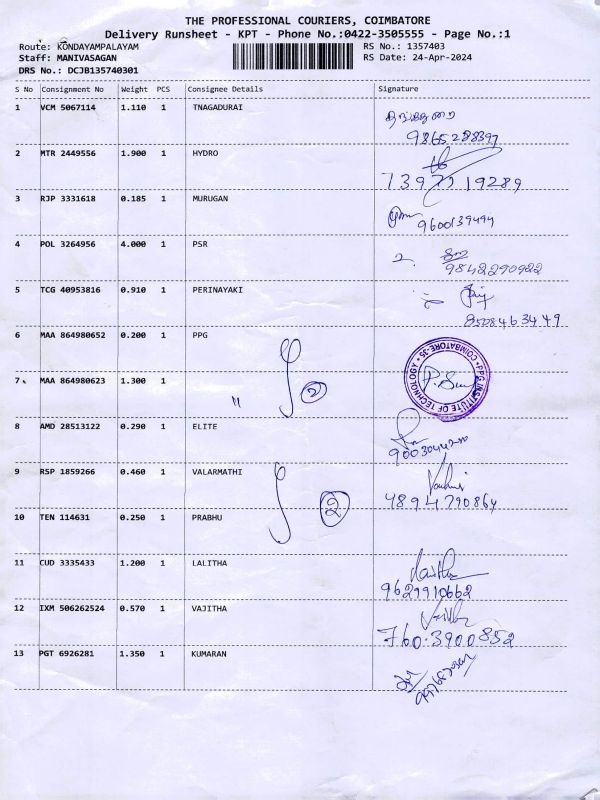 THE PROFESSIONAL COURIERS, COIMBATORE
Delivery Runsheet - KPT - Phone No.:0422-3505555 - Page No.:1
Route: KONDAYAMPALAYAM RS No.: 1357403
Staff: MANIVASAGAN RS Date: 24-Apr-2024
DRS No.: DCJB135740301
S No Consignment No Weight PCS Consignee Details Signature
1 VCM 5067114 1.110 1 TNAGADURAI
9865288397
2 MTR 2449556 1.900 1 HYDRO
7397719289
3 RJP 3331618 0.185 1 MURUGAN
9600139494
4 POL 3264956 4.000 1 PSR
2. 9842290922
5 TCG 40953816 0.910 1 PERINAYAKI
8508463449
6 MAA 864980652 0.200 1 PPG
PPG INSTITUTE OF TECHNOLOGY COIMBATORE-35
7 MAA 864980623 1.300 1 " 2
8 AMD 28513122 0.290 1 ELITE
9 RSP 1859266 0.460 1 VALARMATHI
4894790864
10 TEN 114631 0.250 1 PRABHU 2
11 CUD 3335433 1.200 1 LALITHA
Lalitha
9629910662
12 IXM 506262524 0.570 1 VAJITHA
760.3900852
13 PGT 6926281 1.350 1 KUMARAN